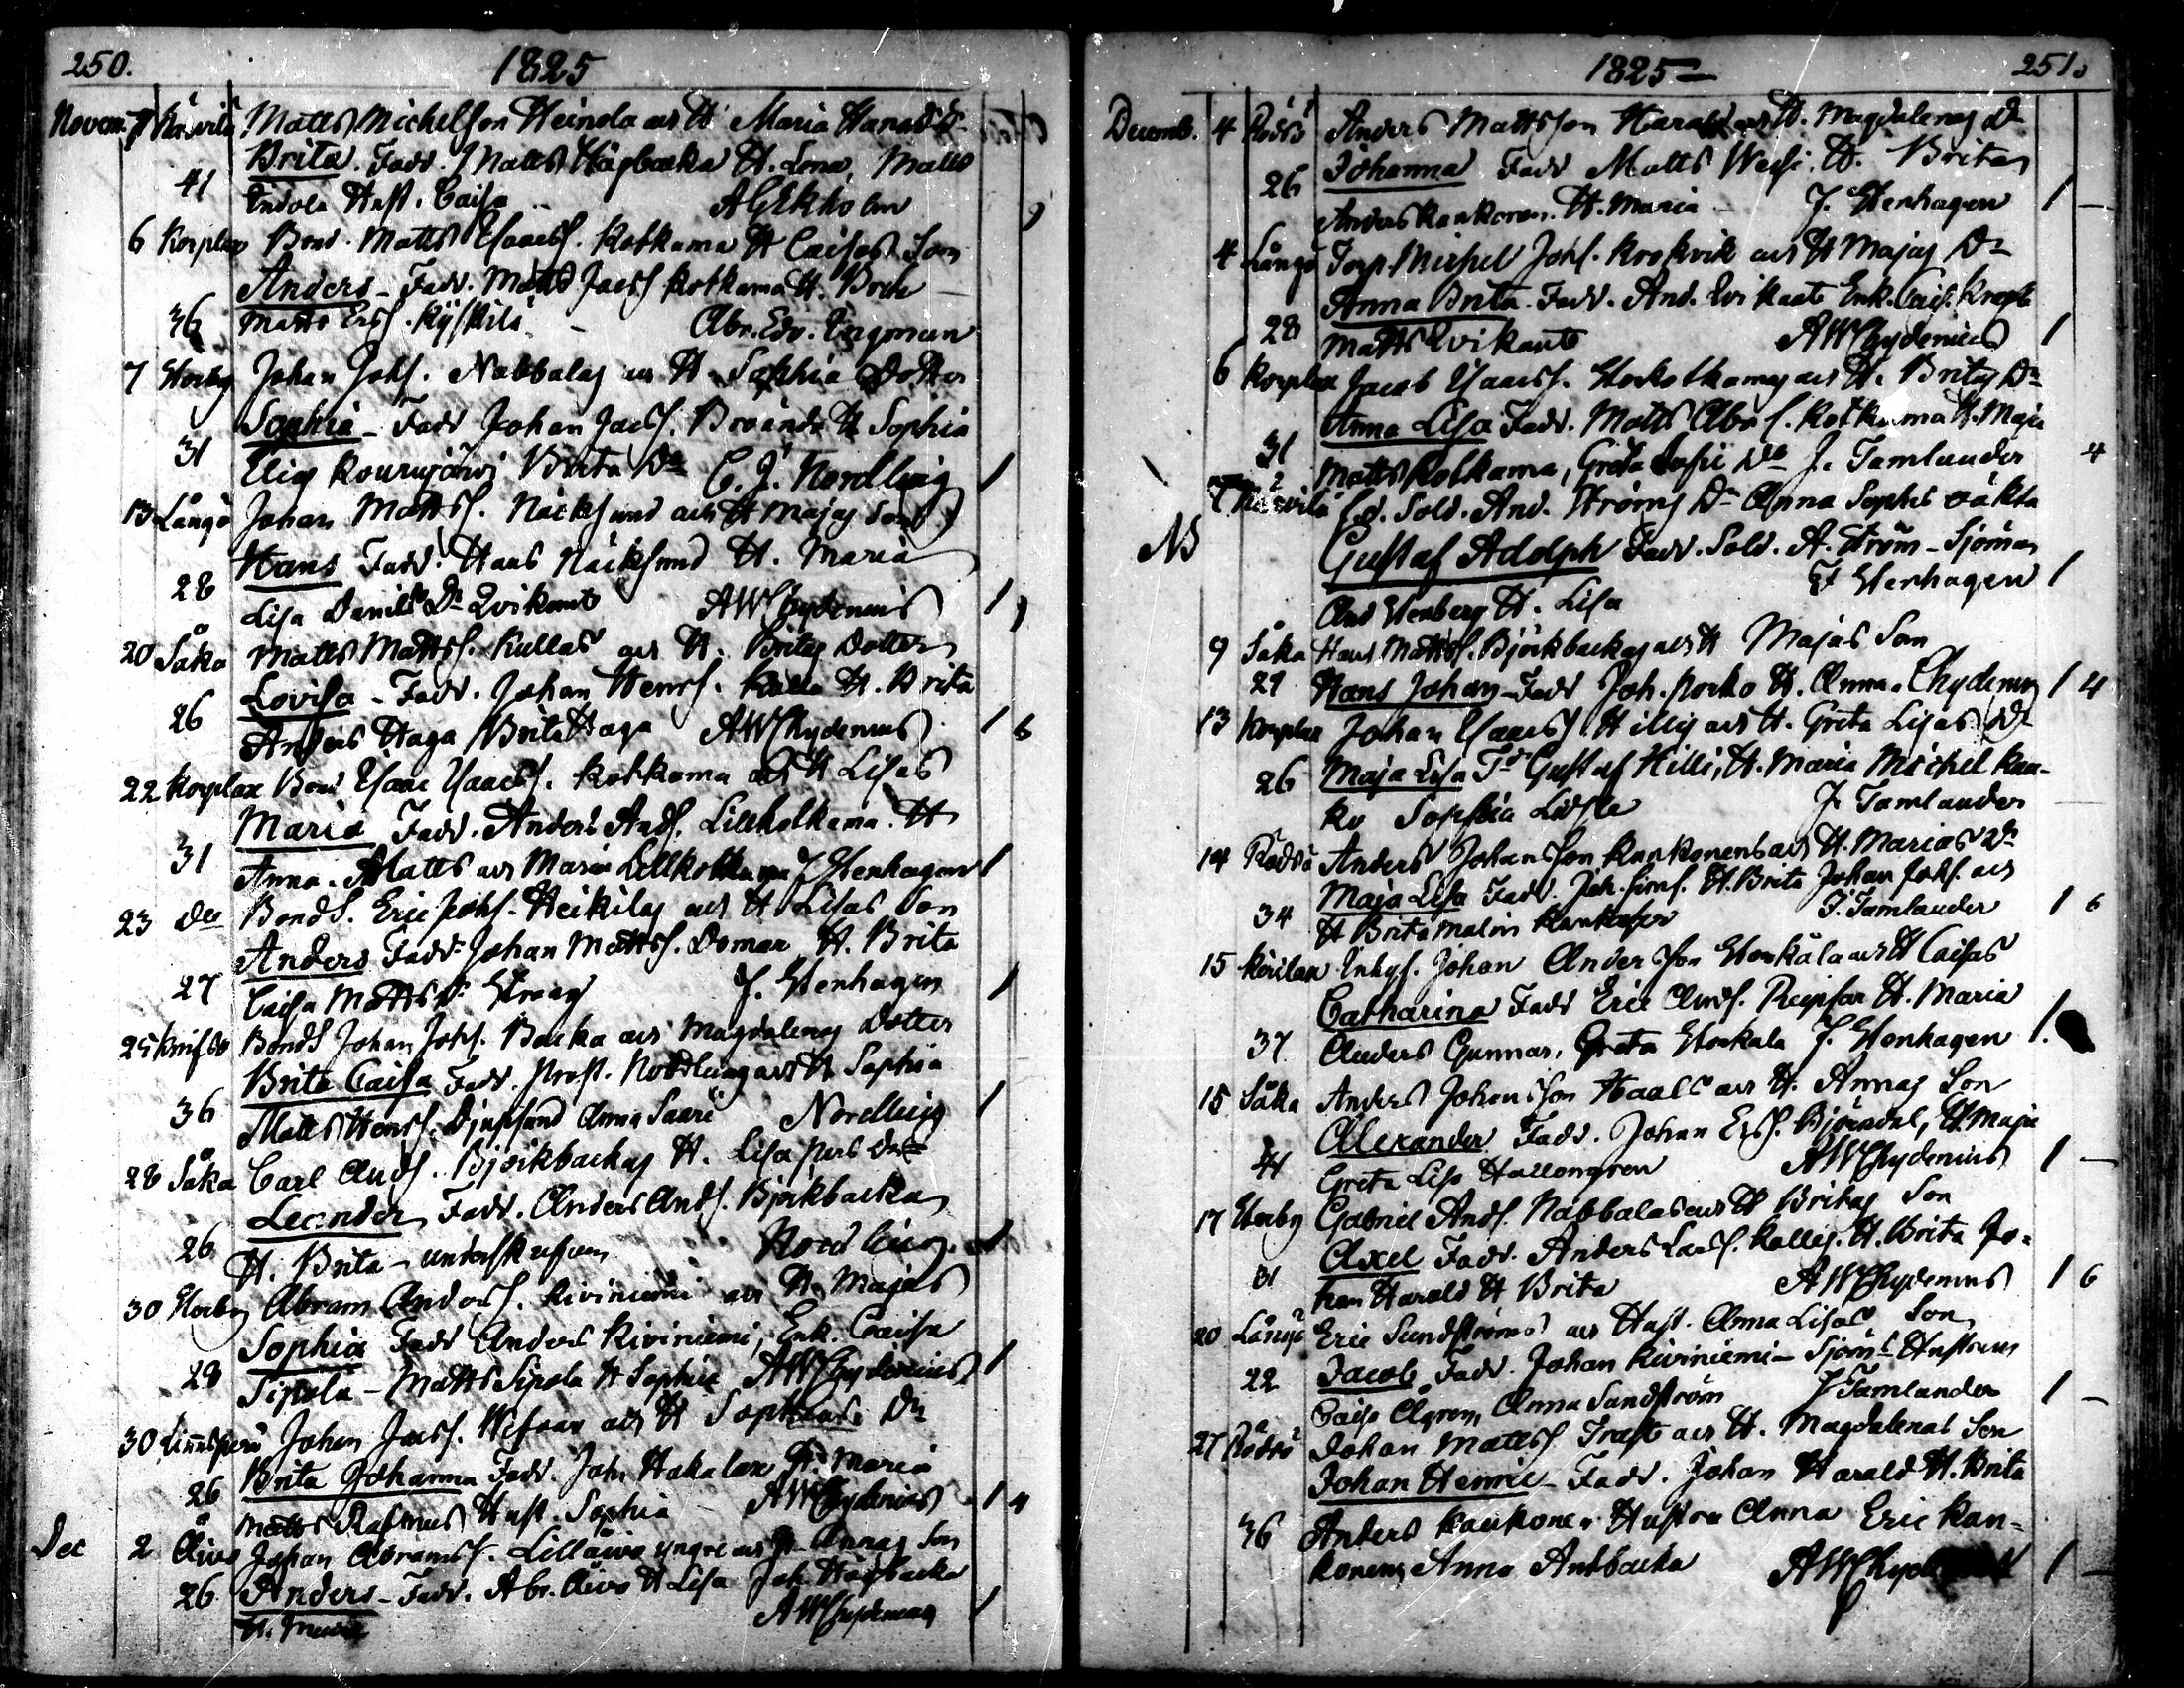 250. 1825
Novem. Matts Michelsson Heinola H. Maria
Brita. Fadd. Matts Högbacka H. Lena, Matts
41 Indola Hust. Caisa AGEkholm
6 Korplax Bond. Matts Isaacss. Kotkama H Caisas Son
Anders - Fadd. Matts Jacss Kotkama H.
36 Matts Erss. Abr. Edv. Ingman
7 Storby Johan Johss. Nabbalas H Sophia Dotter
Sophia - Fadd Johan Jacss. H Sophia
31 Elig Kourujärvi Brita Dr C. J. Nordling
13 Långö Johan Mattss. Näcksund H Majas Son
Hans Fadd. Hans Näcksund H. Maria
28 Lisa Daniels Dr Qvikant AWChydenius
20 Såka Matts Mattss. Kullas H. Britas Dotter
Lovisa - Fadd. Johan Henrss. H. Brita
26 Anders Haga Brita Haga AWChydenius 1 6
22 Korplax Bond Isaac Isaacss. Kotkama H Lisas
Maria Fadd. Anders Andss. Lillkotkama. H
31 Anna. Matts Maria Lillkotkama J Stenhagen
23 Do Bonds. Eric Johss. Heikilas H Lisas Son
Anders Fadd. Johan Mattss. Domar H. Brita
27 Caisa Matts Dr J. Stenhagen
25 Bonds Johan Johss. Backa Magdalenas Dotter
Brita Caisa Fadd. Prost. Nordling H Sophia
36 Matts Henrss. Djupsund Anna Saari Nordling
28 Såka Carl Andss. Björkbackas H. Lisa Pers Dr
Leander Fadd. Anders Andss. Björkbacka
26 H. Brita - Nordling
30 Storby Abram Anderss. Kiviniemi H Majas
Sophia Fadd Anders Kiviniemi, Enk. Caisa
29 Sipola - Matts Sipola H Sophia AWChydenius
30 Linnusperä Johan Jacss. H Sophias Dr
Brita Johanna Fadd. Joh. Hakalax H. Maria
26 Matts Rasmus Hust. Sophia AWChydenius 1 4
Dec 2 Åivo Johan Abramss. Lillåivo yngre H Annas Son
26 Anders - Fadd. Abr. Åivo H Lisa Joh. Högbacka
H. AWChydenius
1825 251.
Decemb. 4 Rödsö Anders Mattsson Harald H. Magdalenas Dr
26 Johanna Fadd Matts H. Brita
Anders Kankonen. H. Maria - J. Stenhagen
4 Långö Torp. Michel Johss. Krokvik H Majas Dr
Anna Brita. Fadd. And. Qvikant Enk. Cais.
28 Matts Qvikant AWChydenius
6 Korplax Jacob Isaacss. Storkotkamas H. Britas Dr
Anna Lisa Fadd. Matts Abrss. Kotkama H. Maja
31 Matts Kotkama, Greta Dr J. Tamlander 4
7 Sold. And. Ströms Dr Anna Sophis oäkta
NB Gustaf Adolph Fadd. Sold. A. Ström - Sjöman
And Stenberg H. Lisa J Stenhagen
9 Såka Hans Mattss. Björkbackas H Majas Son
29 Hans Johan - Fadd Joh. Porko H. Anna. Chydenius 1 4
13 Korplax Johan Isaacss Hillis H. Greta Lisas Dr
26 Maja Lisa Fd Gustaf Hilli, H. Maria Michel Kan-
ko Sophia J. Tamlander
14 Rödsö Anders Johansson Kankonens H. Marias Dr
Maja Lisa Fadd. Joh. H. Brita Johan Johss.
34 H Brita Malin J. Tamlander 1 6
15 Johan Andersson Storkåla H Caisas
Catharina Fadd Eric Andss. H. Maria
37 Anders Gunnar, Greta Storkala J. Stenhagen
15 Såka Anders Johansson Haals H. Annas Son
Alexander Fadd. Johan Erss. Björndal, H. Maja
41 Greta Lisa Hallongren AWChydenius
17 Storby Gabriel Andss. Nabbalas H Britas Son
Axel Fadd. Anders Larss. H. Brita Jo-
31 han Harald H Brita AWChydenius 1 6
20 Långö Eric Sundströms Hust. Anna Lisas Son
22 Jacob Fadd. Johan Kiviniemi - Hustrun
Caisa Anna Sundström J Tamlander
27 Rödsö Johan Mattss Trast H. Magdalenas Son
Johan Henric - Fadd. Johan Harald H. Brita
36 Anders Kankonen Hustru Anna Eric Kan-
konens Anna Antbacka AWChydenius